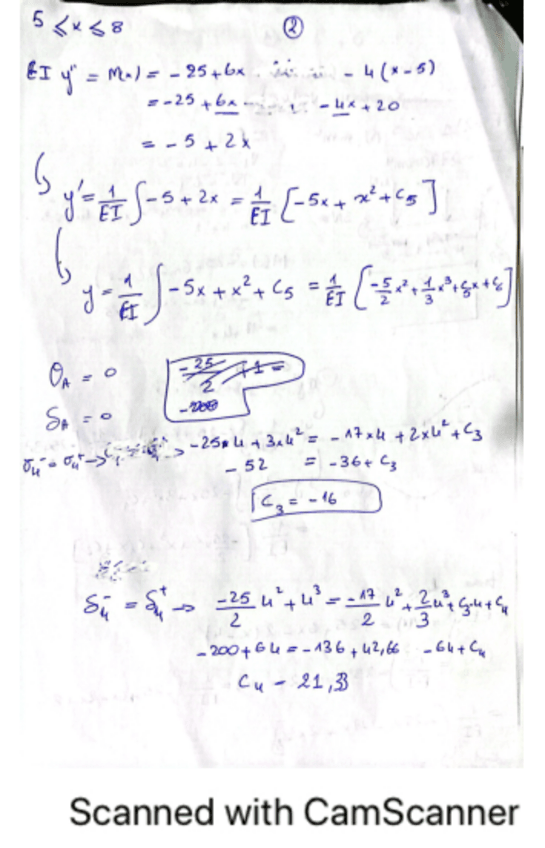 5 ≤ x ≤ 8
②
EI y'' = M(x) = -25 + 6x - 4(x-5)
= -25 + 6x - 4x + 20
= -5 + 2x
y' = 1/EI ∫ -5 + 2x = 1/EI [-5x + x² + C5]
y = 1/EI ∫ -5x + x² + C5 = 1/EI [-5/2 x² + 1/3 x³ + C5x + C6]
θA = 0
-25/2 + 1 =
SA = 0
-200
-25x4 + 3x4² = -17x4 + 2x4² + C3
-52 = -36 + C3
C3 = -16
S4⁻ = S4⁺ → -25/2 4² + 4³ = -17/2 4² + 2/3 4³ + C3·4 + C4
-200 + 64 = -136 + 42,66 -64 + C4
C4 - 21,33
Scanned with CamScanner